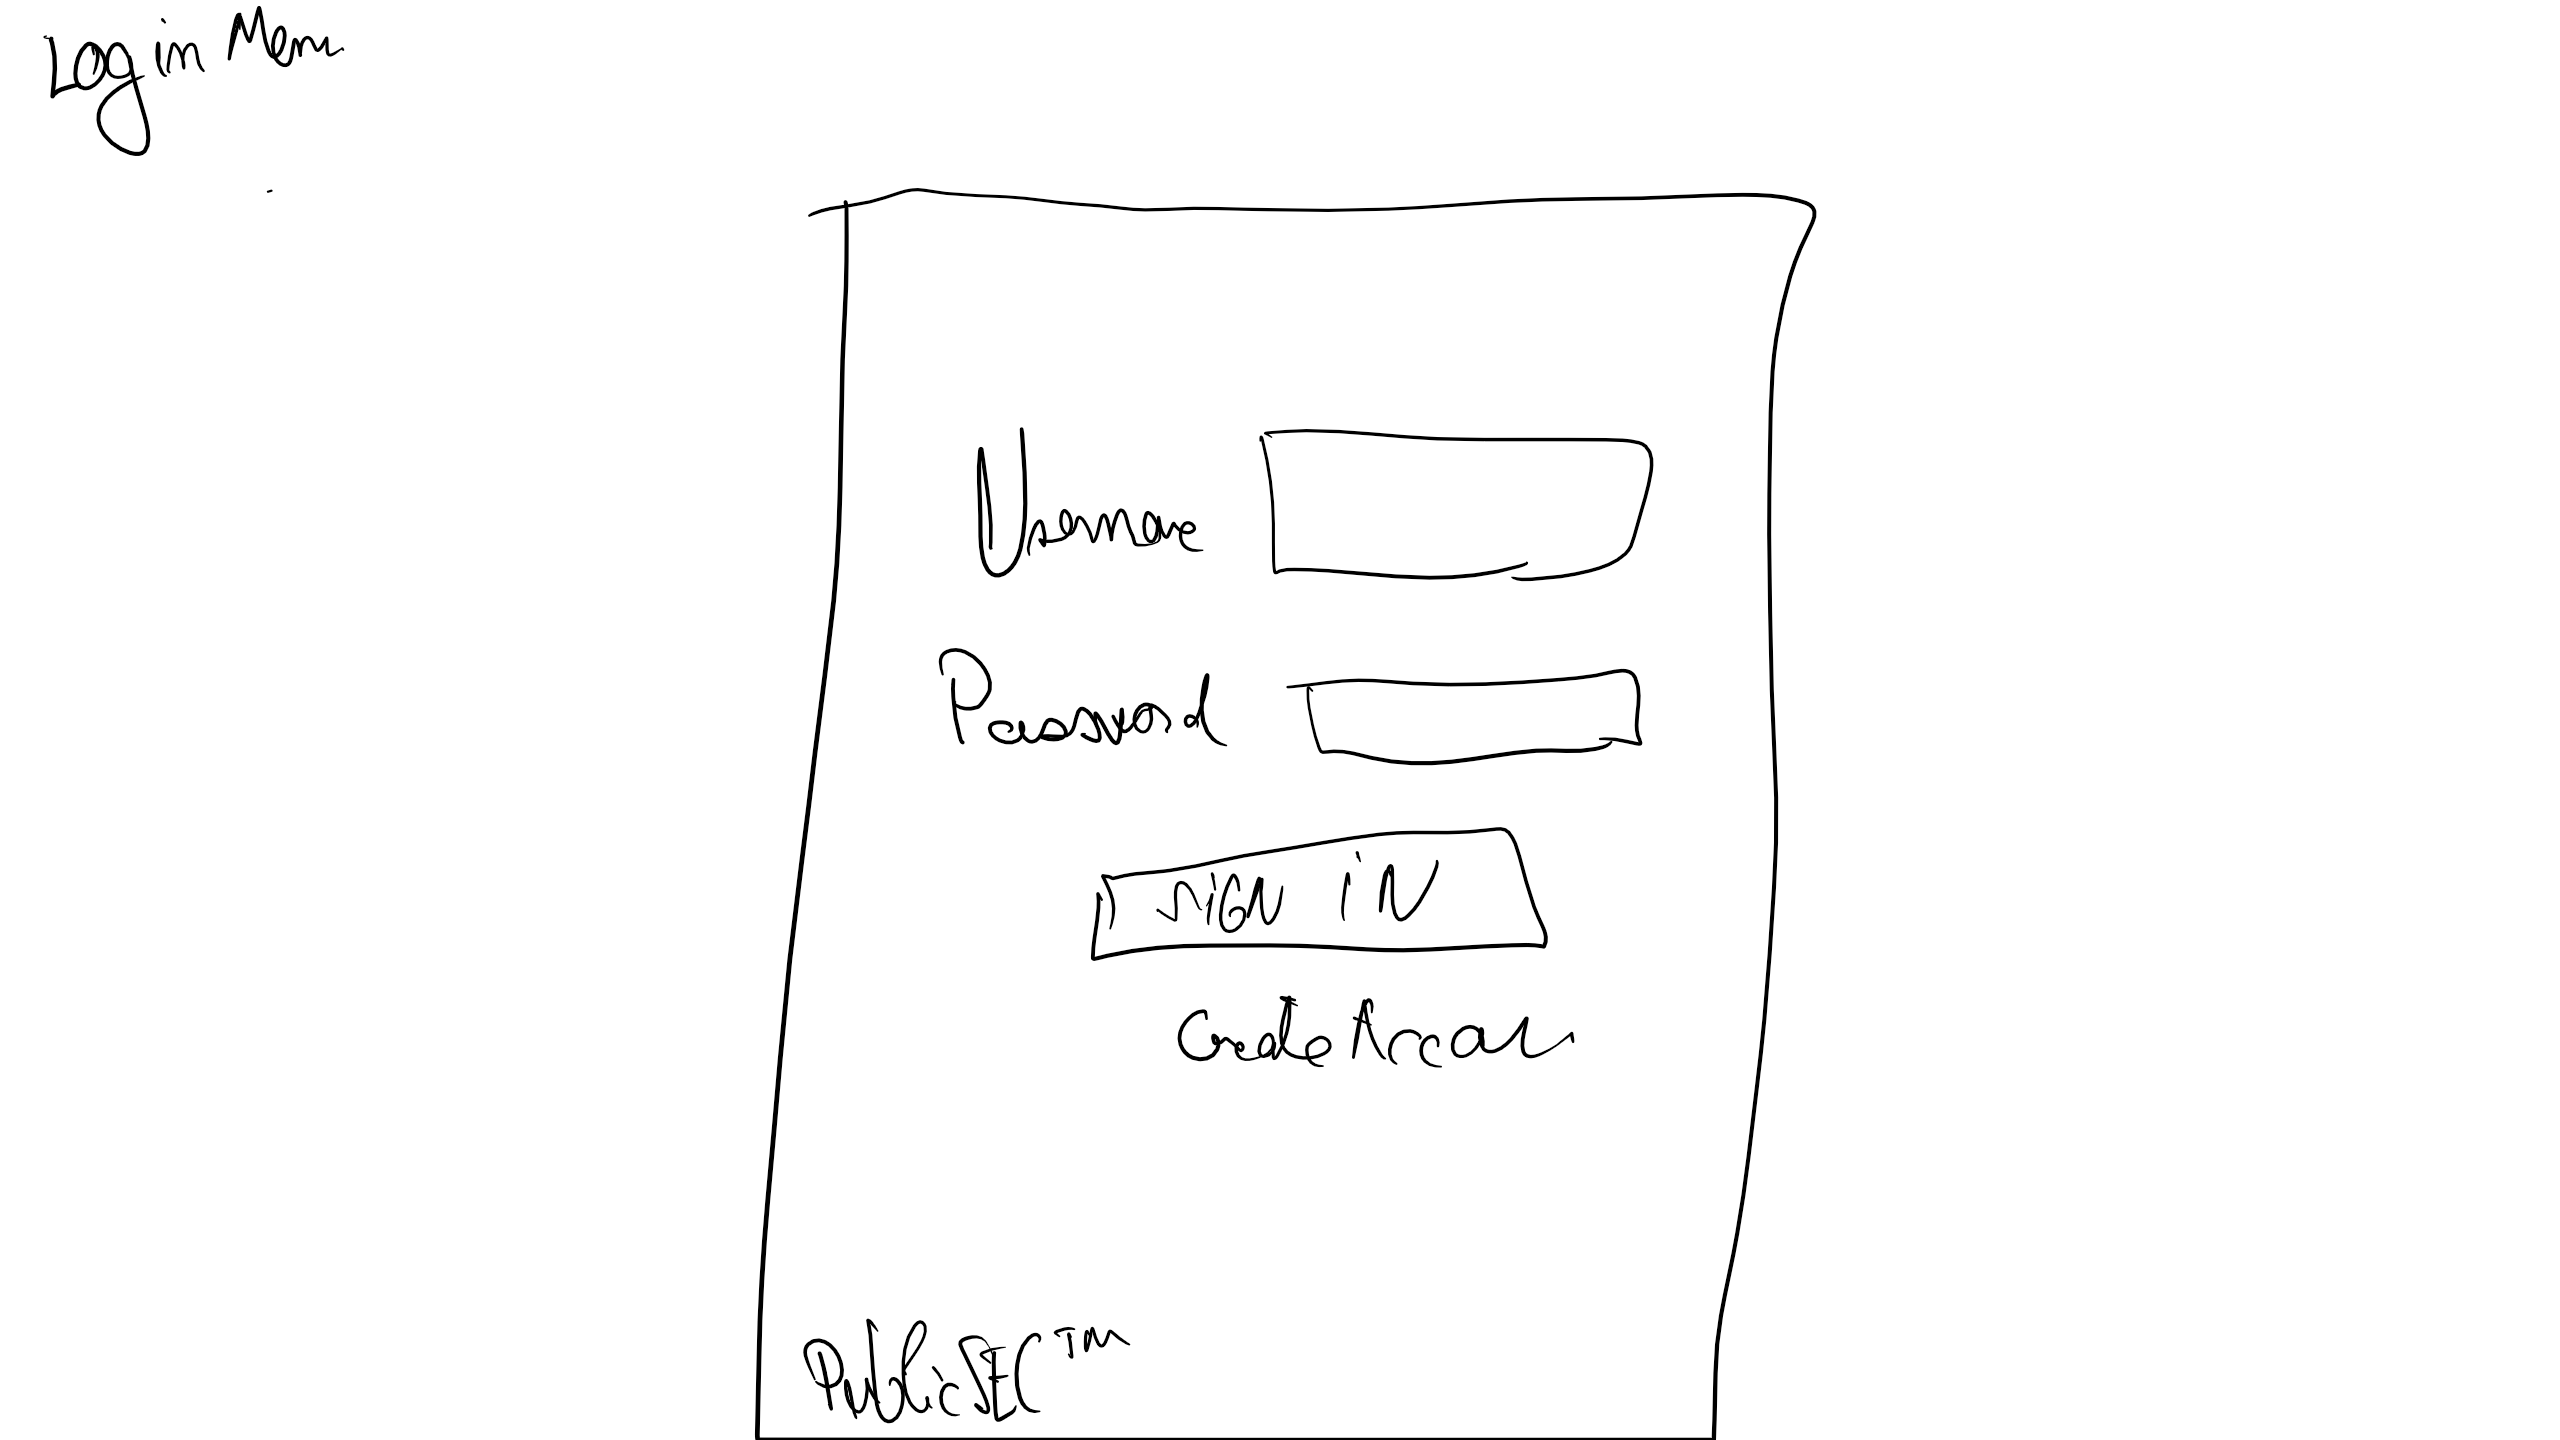 Log in Menu
Username
Password
SiGN iN
Create Accou
PublicSEC™